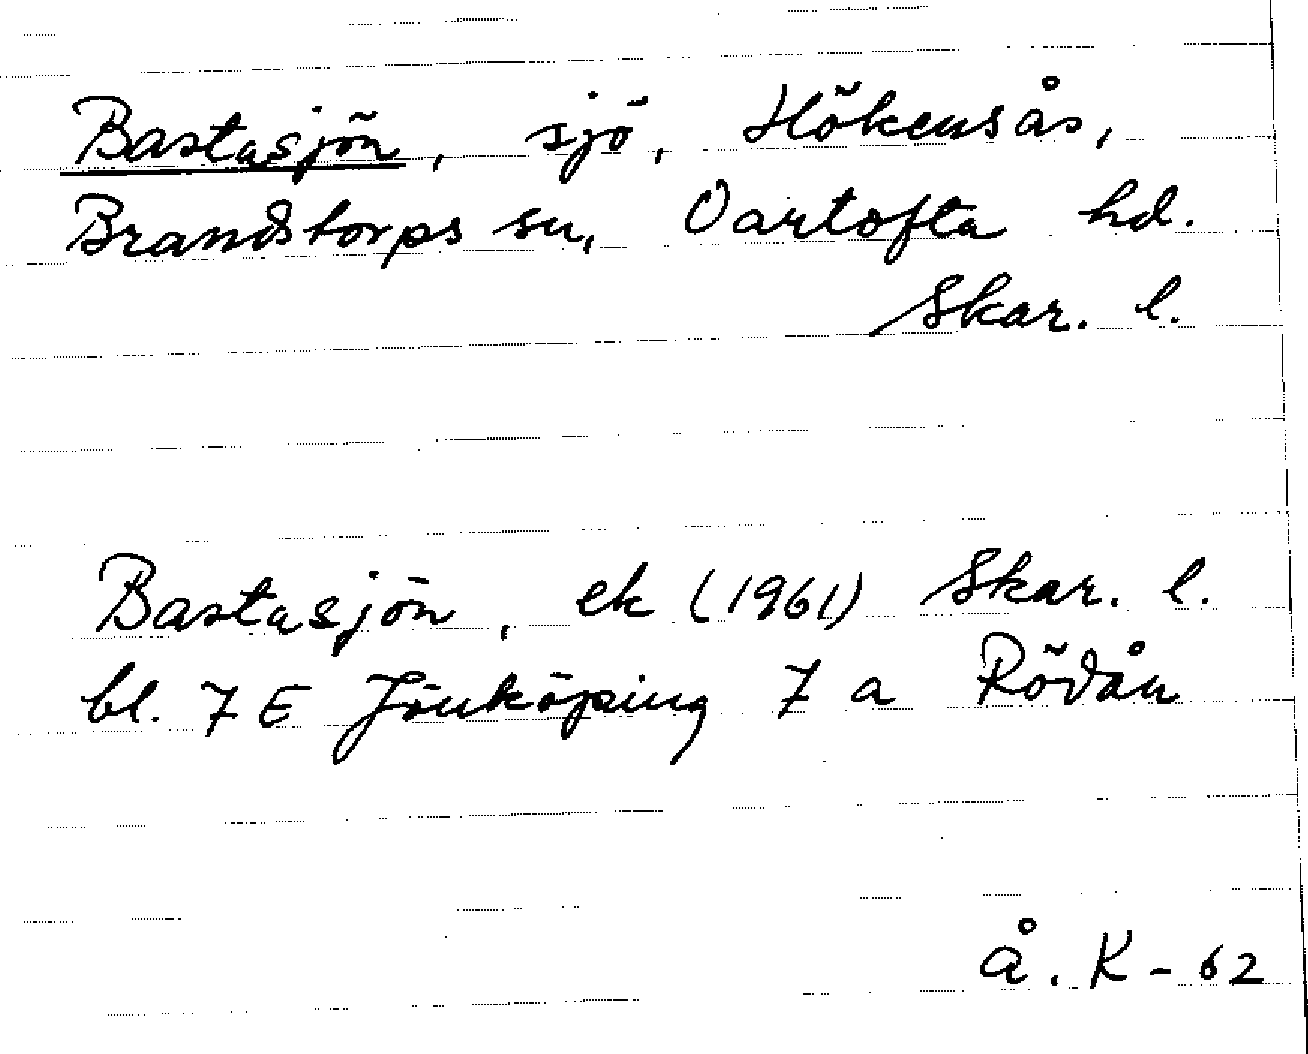 Bastasjön, sjö, Hökensås,
Brandstorps sn, Vartofta hd.
Skar. l.
Bastasjön, ek (1961) Skar. l.
bl. 7 E Jönköping 7 a Rödån
Å. K - 62